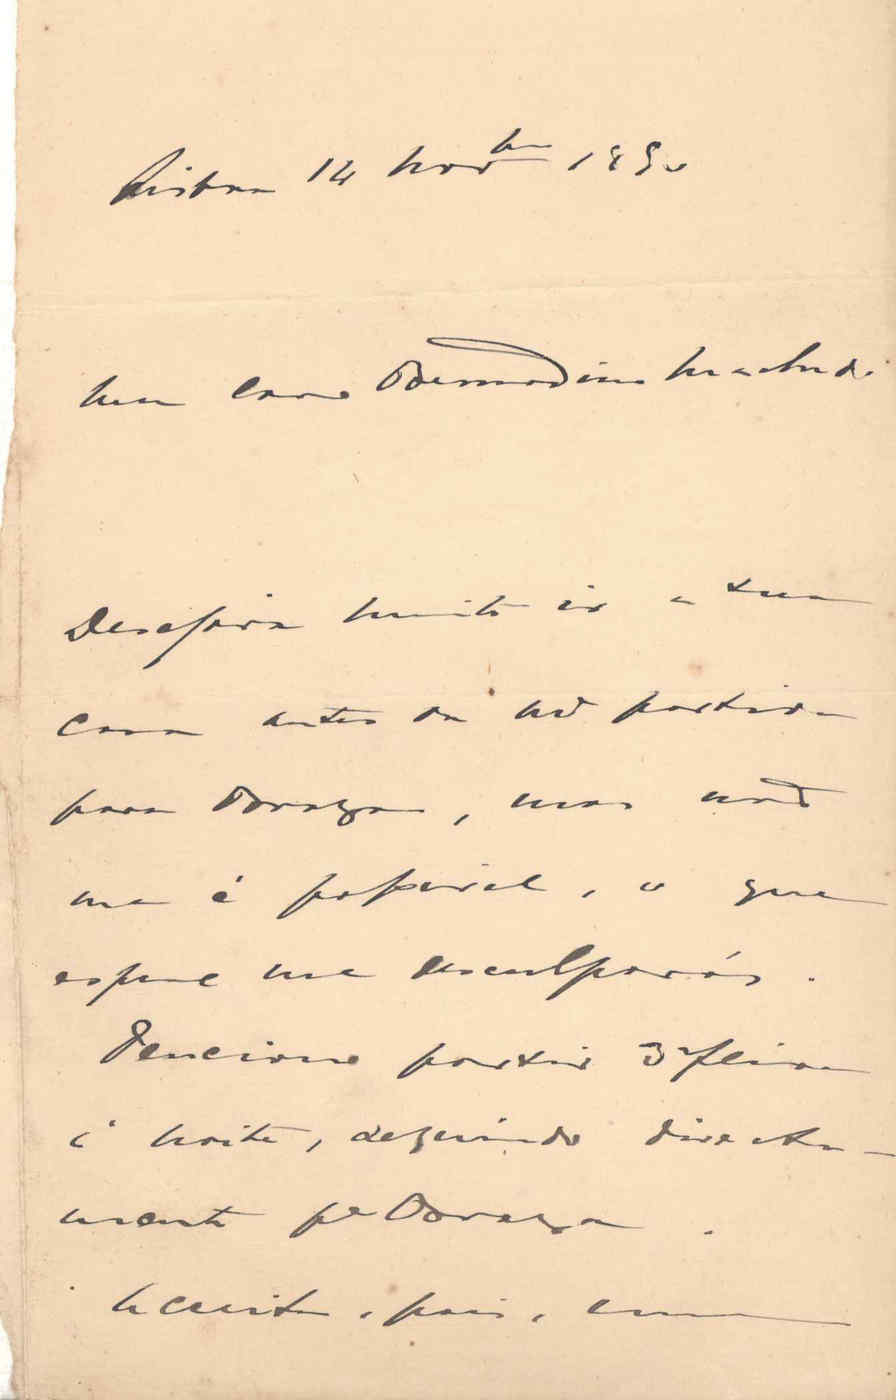 Lisboa 14 Novbro 1890
Meu Caro Bernardino Machado
Desejava muito ir a sua
casa antes da partida
para Braga, mas não
me é possivel, o que
espero me desculparás.
Tenciono partir 3ª feira
á noite, seguindo directa-
mente pª Braga.
Acceita, pois, um